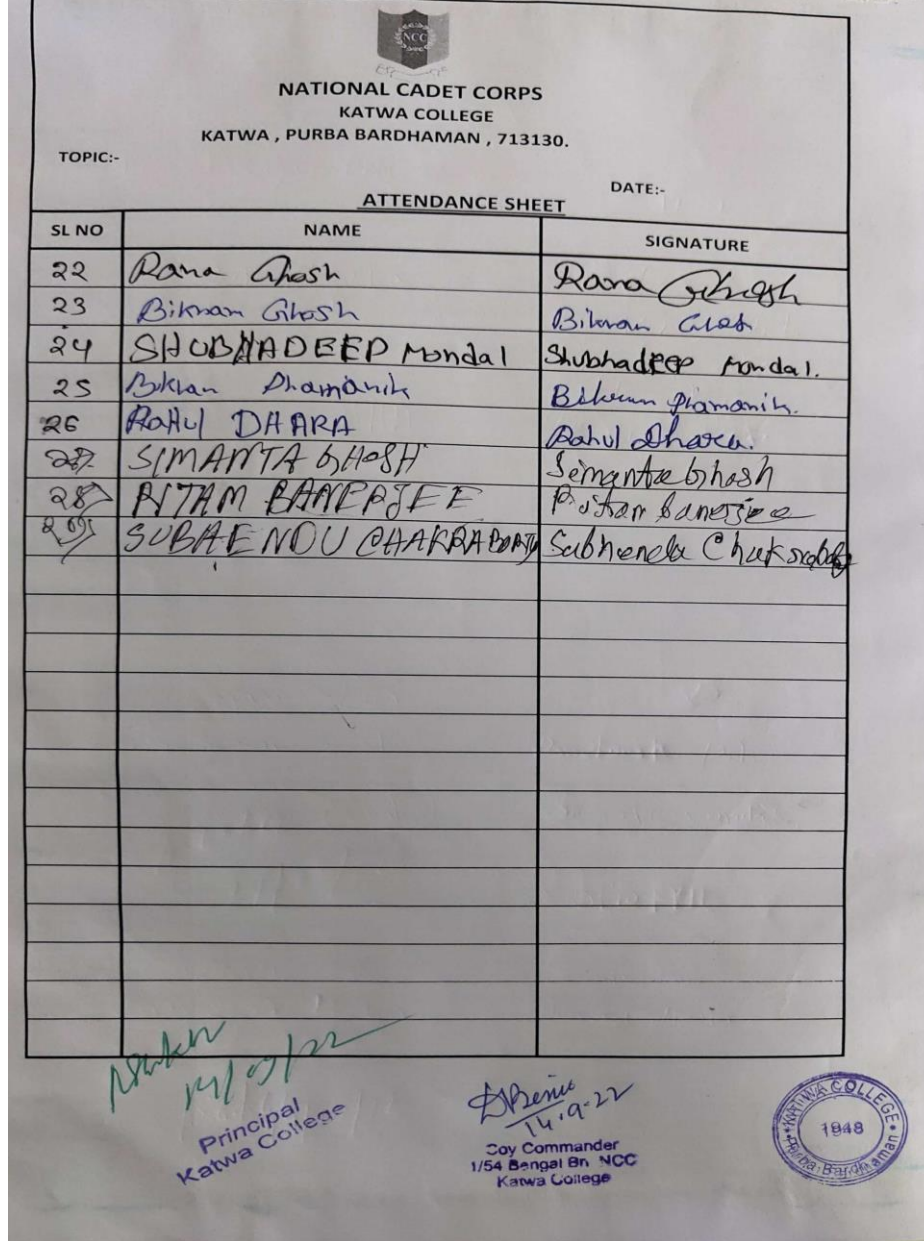 NCC
NATIONAL CADET CORPS
KATWA COLLEGE
KATWA , PURBA BARDHAMAN , 713130.
TOPIC:-
DATE:-
ATTENDANCE SHEET
SL NO NAME SIGNATURE
22 Rana Ghosh Rana Ghosh
23 Bikram Ghosh Bikram Ghosh
24 SHUBHADEEP Mondal Shubhadeep Mondal.
25 Bikram Phamanik Bikram Pramanik.
26 RAHUL DHARA Rahul Dhara.
27 SIMANTA GHOSH Simanta Ghosh
28 RITAM BANERJEE Ritam Banerjee
29 SUBHENDU CHAKRABORTY Subhendu Chakraborty
14/09/22
14.9.22
Principal
Katwa College
Coy Commander
1/54 Bengal Bn NCC
Katwa College
KATWA COLLEGE
1948
Purba Bardhaman